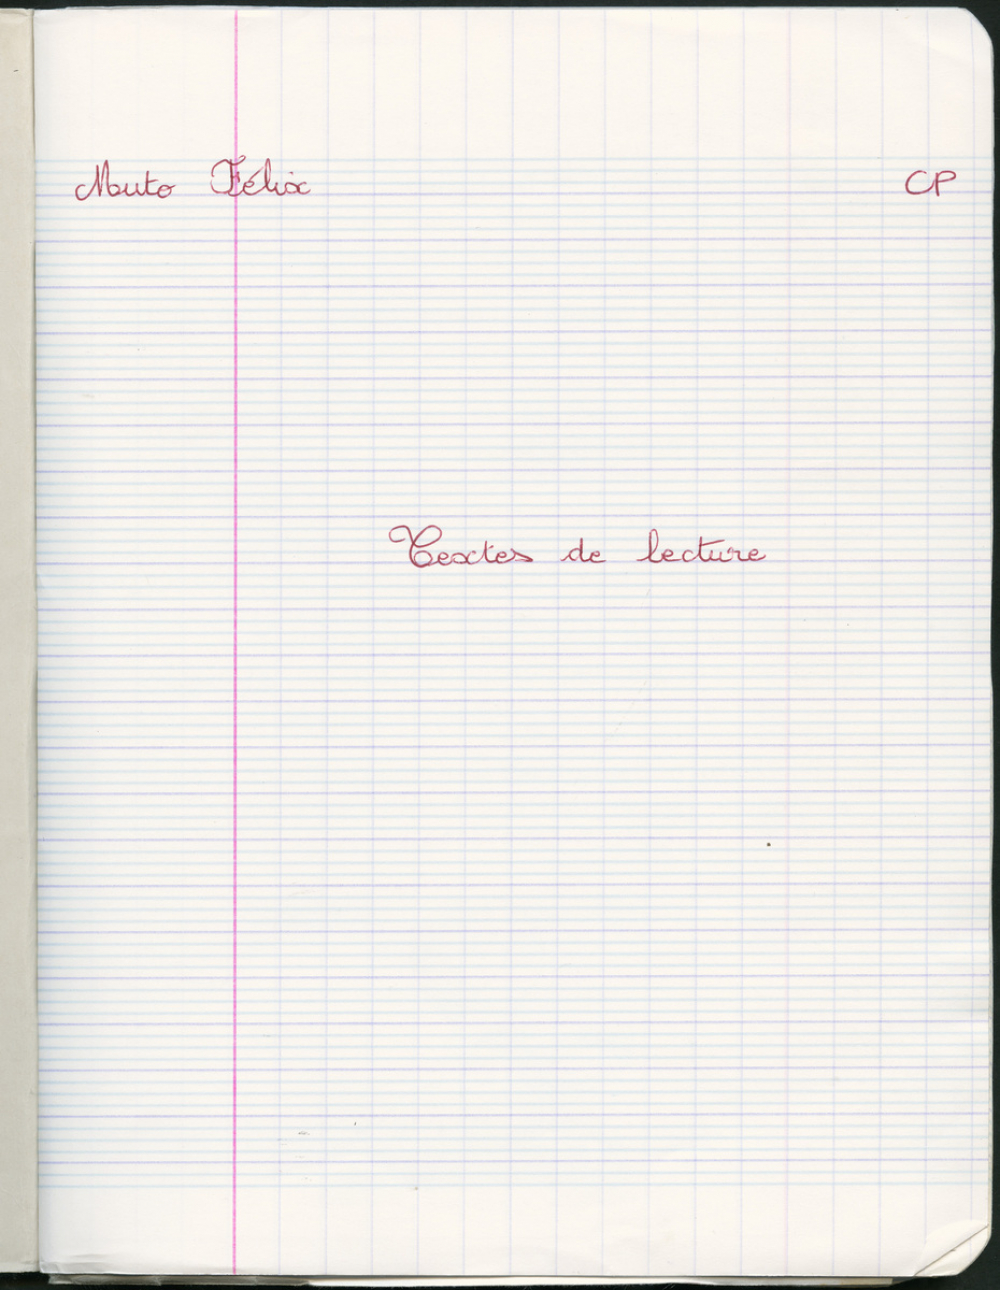 Muto Félix CP
Textes de lecture